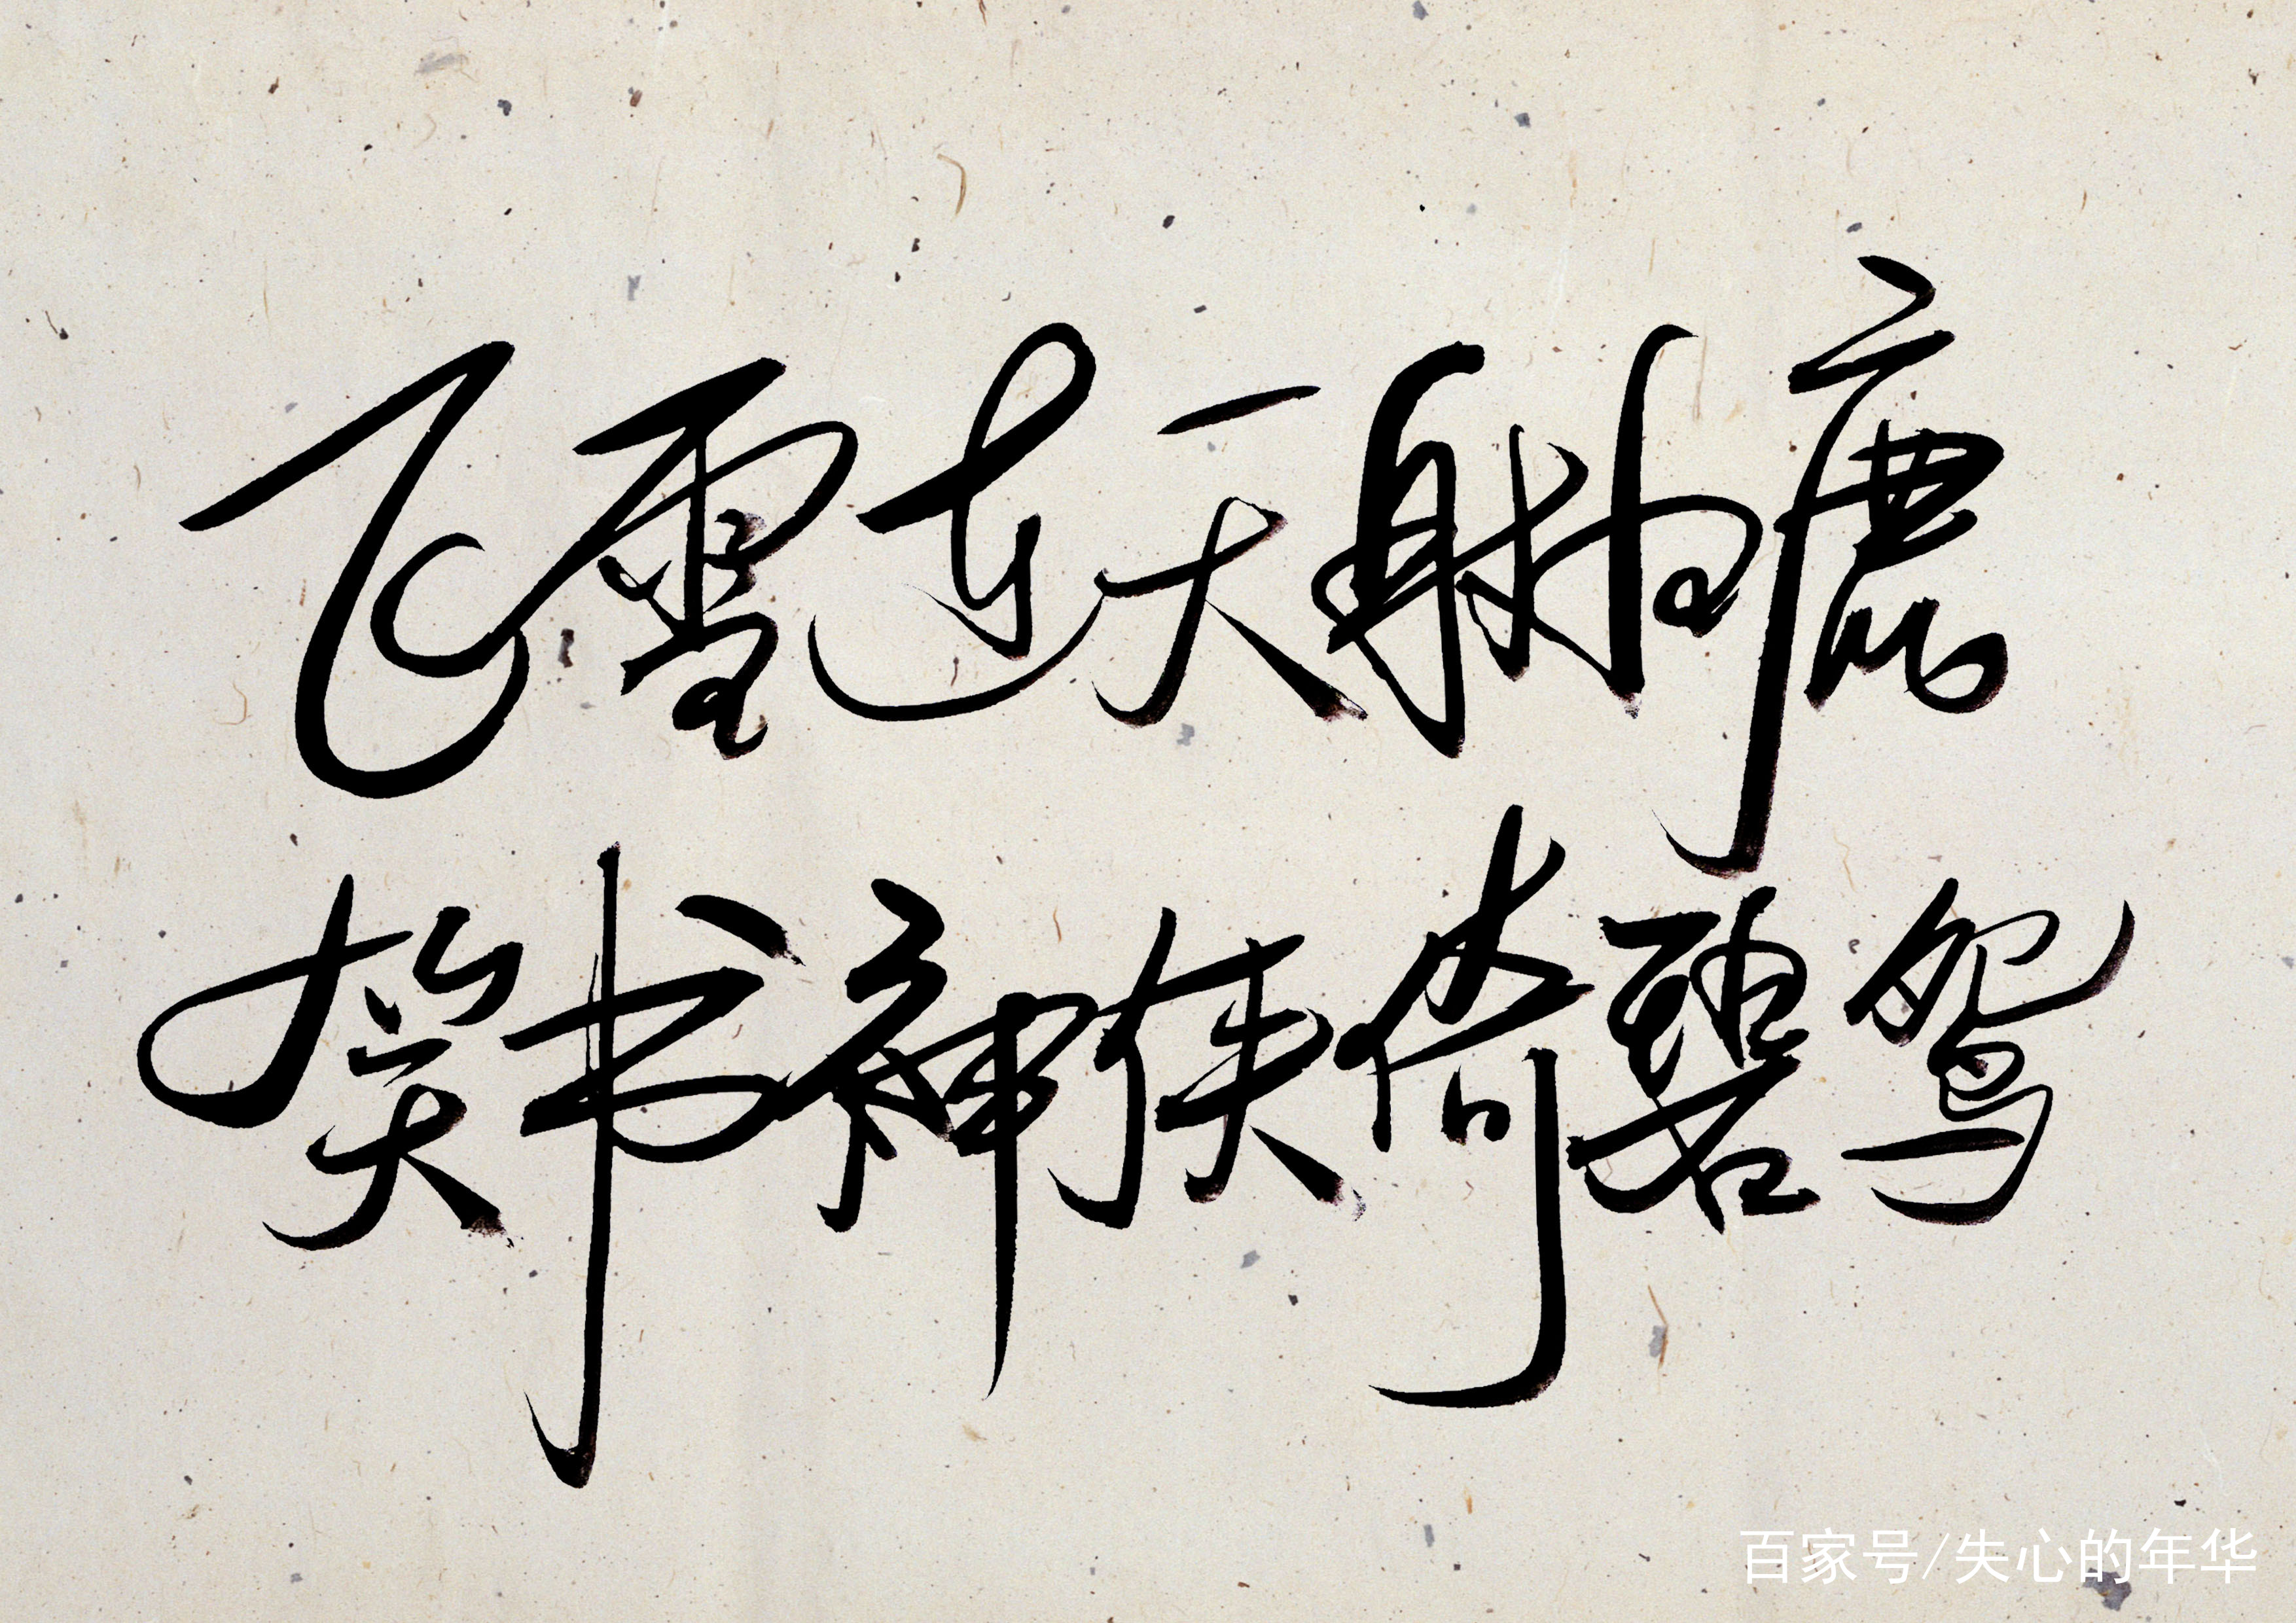 飞雪连天射白鹿
笑书神侠倚碧鸳
百家号/失心的年华